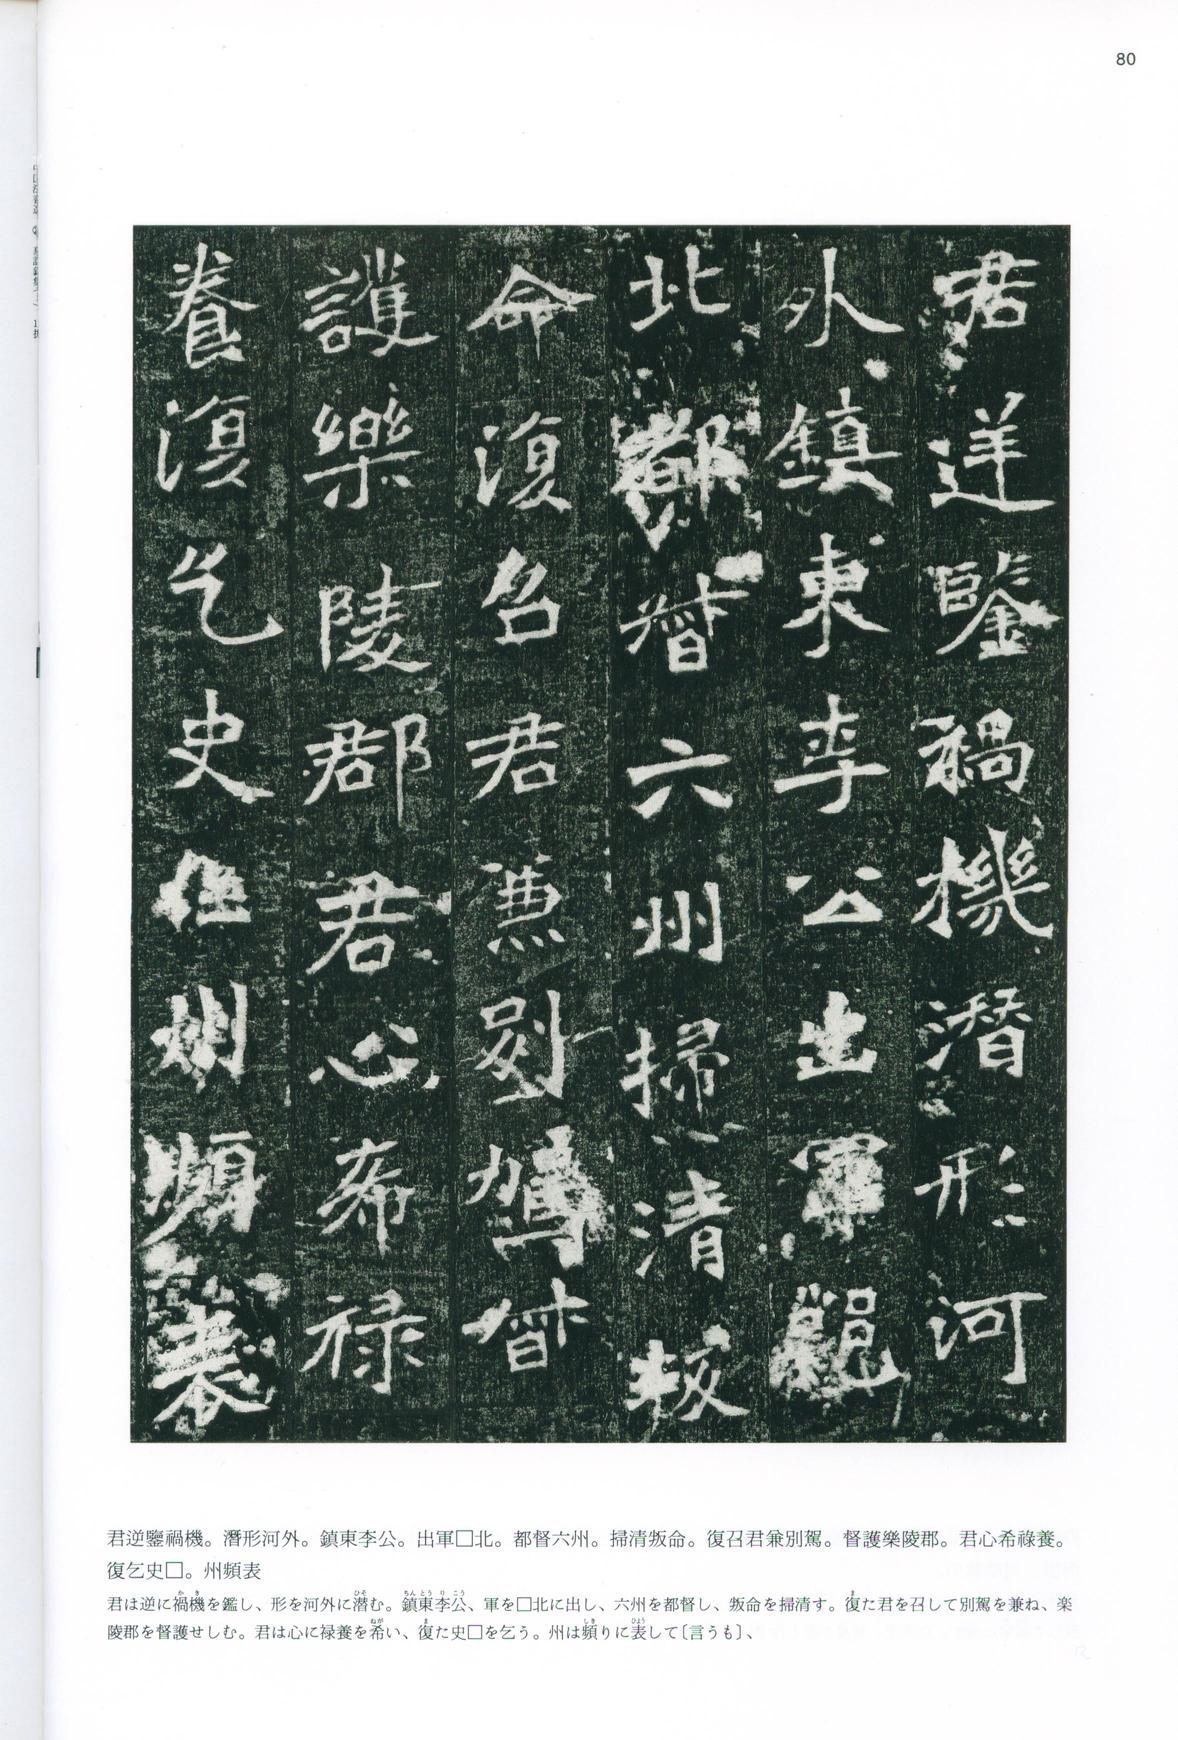 80
君逆鑒禍機潛形河
外鎮東李公出軍
北都督六州掃清叛
命復召君兼別駕督
護樂陵郡君心希祿
養復乞史任州頻表
君逆鑒禍機。潛形河外。鎮東李公。出軍□北。都督六州。掃清叛命。復召君兼別駕。督護樂陵郡。君心希祿養。
復乞史□。州頻表
君は逆に禍機を鑑し、形を河外に潜む。鎮東李公、軍を□北に出し、六州を都督し、叛命を掃清す。復た君を召して別駕を兼ね、楽
陵郡を督護せしむ。君は心に禄養を希い、復た史□を乞う。州は頻りに表して〔言うも〕、